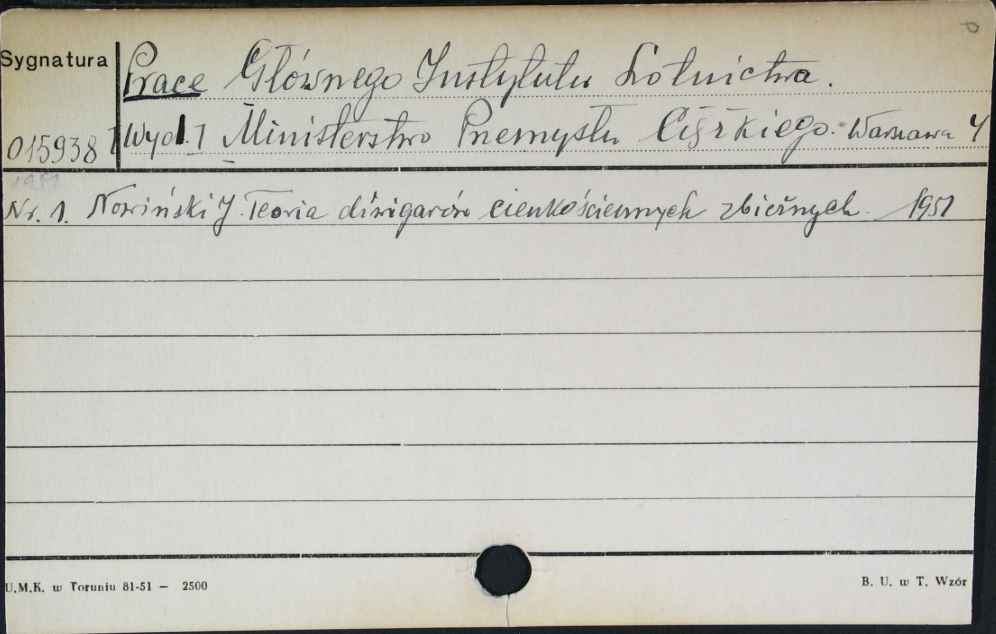 Sygnatura
Prace Głównego Instytutu Lotnictwa.
015938 I
[Wyd.] Ministerstwo Przemysłu Ciężkiego. Warszawa 4
1951
Nr. 1. Nowiński J. Teoria dźwigarów cienkościennych zbieżnych 1951
U.M.K. w Toruniu 81-51 — 2500
B. U. w T. Wzór